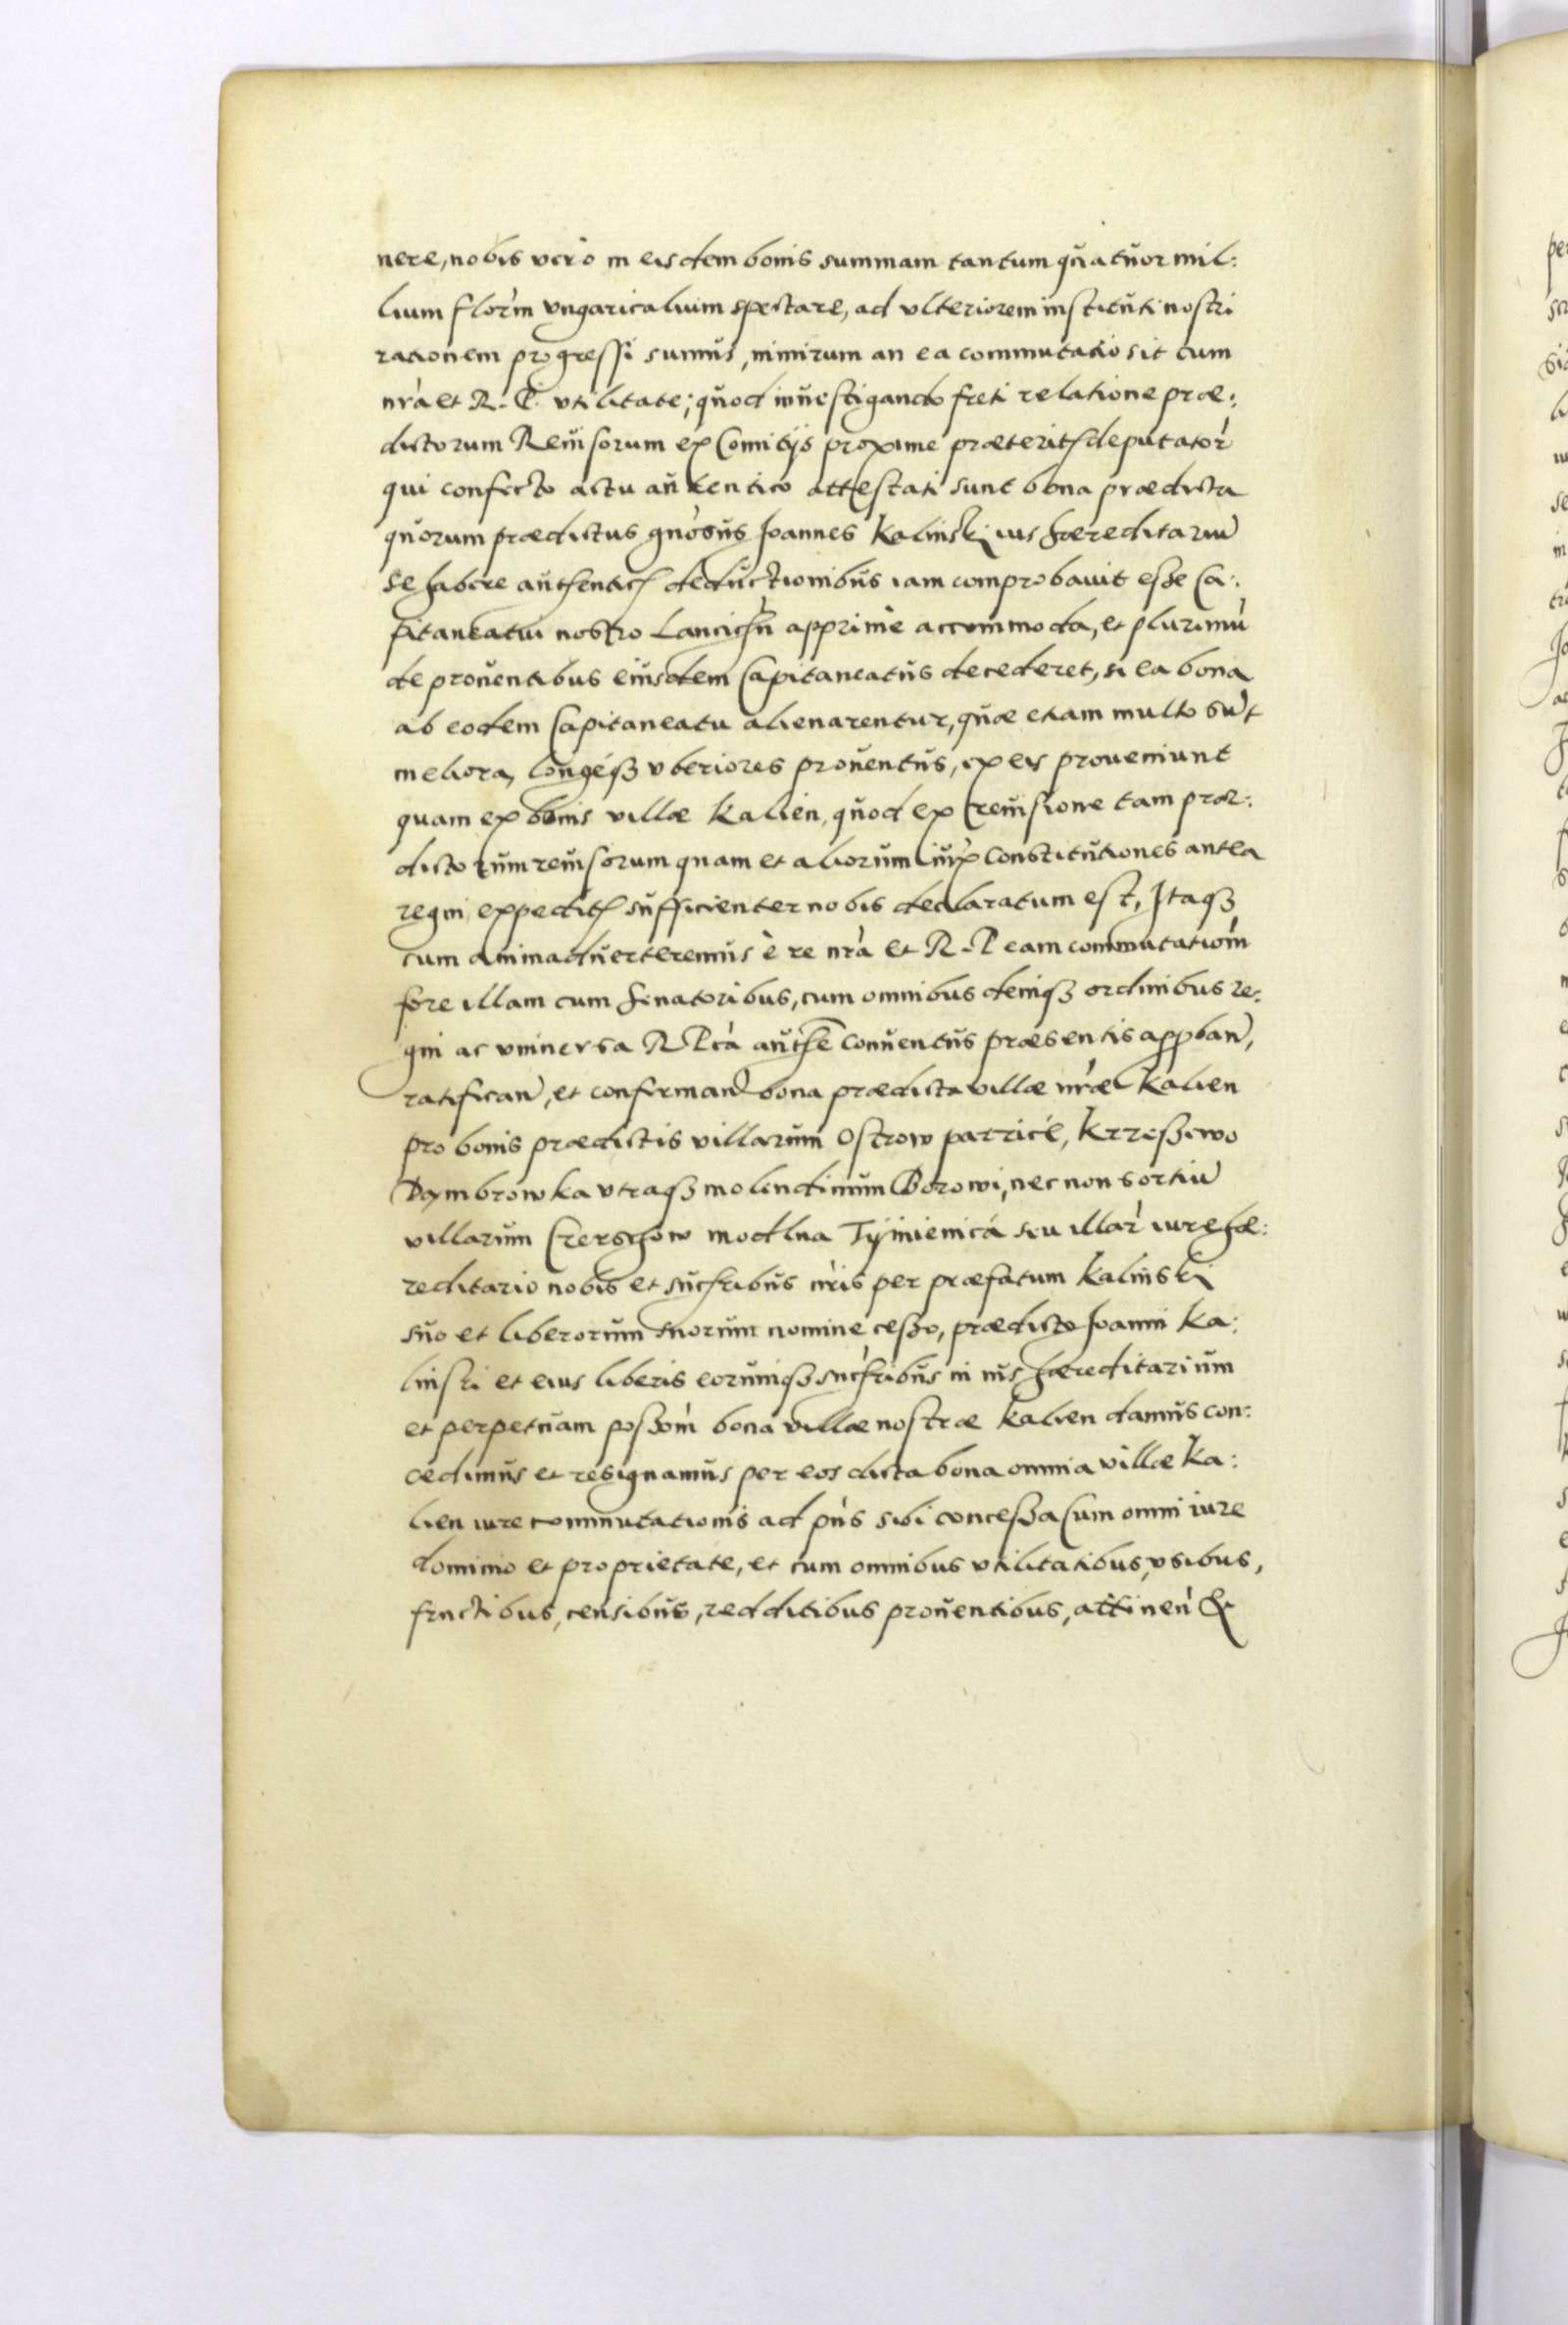 nere, nobis vero in eisdem bonis summam tantum quatuor mil:
lium florin̄ vngaricalium spectare, ad vlteriorem instituti nostri
rationem progressi sumus, nimirum an ea commutatio sit cum
nrà et R. P. vtilitate; quod inuestigando freti relatione præ:
dictorum Reuisorum ex Comitijs proxime præterit deputator̀
qui confecto actu autentico attestati sunt bona prædicta
quorum prædictus gnòsus Joannes Kalinski ius hæreditariū
se habere authentic deductionibus iam comprobauit esse Ca:
pitaneatui nostro Lancicień apprime accommoda, et plurimū
de prouentibus eiusdem Capitaneatus decederet, si ea bona
ab eodem Capitaneatu alienarentur, quæ etiam multo sūt
meliora, longéqȝ vberiores prouentus, ex eis proueniunt
quam ex bonis villæ Kalien, quod ex reuisione tam præ:
dictorum reuisorum quam et aliorum iux Constitutiones antea
regni expedit sufficienter nobis declaratum est, Itaqȝ
cum animaduerteremus è re nrà et R. P eam commutatiom̀
fore illam cum senatoribus, cum omnibus deniqȝ ordinibus re:
gni ac vniuersa R Pcà authē conuentus præsentis appban̄,
ratifican̄, et confirman̄ bona prædicta villæ nràe Kalien
pro bonis prædictis villarum Ostrow parricé, Krzeszewo
Dąmbrowka vtraqȝ molendinum Borowi, nec non sortiū
villarum Czerschow modlna Tÿmienica seu illar̀ iure hæ:
reditario nobis et sucribus nr̀is per præfatum Kalinski
suo et liberorum suorum nomine cesso, prædicto Joanni Ka:
linski et eius liberis eorumqȝ sucribus in ius hæreditarium
et perpetuam possom̀ bona villæ nostræ Kalien damus con:
cedimus et resignamus per eos dicta bona omnia villæ Ka:
lien iure commutationis ad pǹs sibi concessa cum omni iure
dominio et proprietate, et cum omnibus vtilitatibus, vsibus,
fructibus, censibus, redditibus prouentibus, attineǹ &